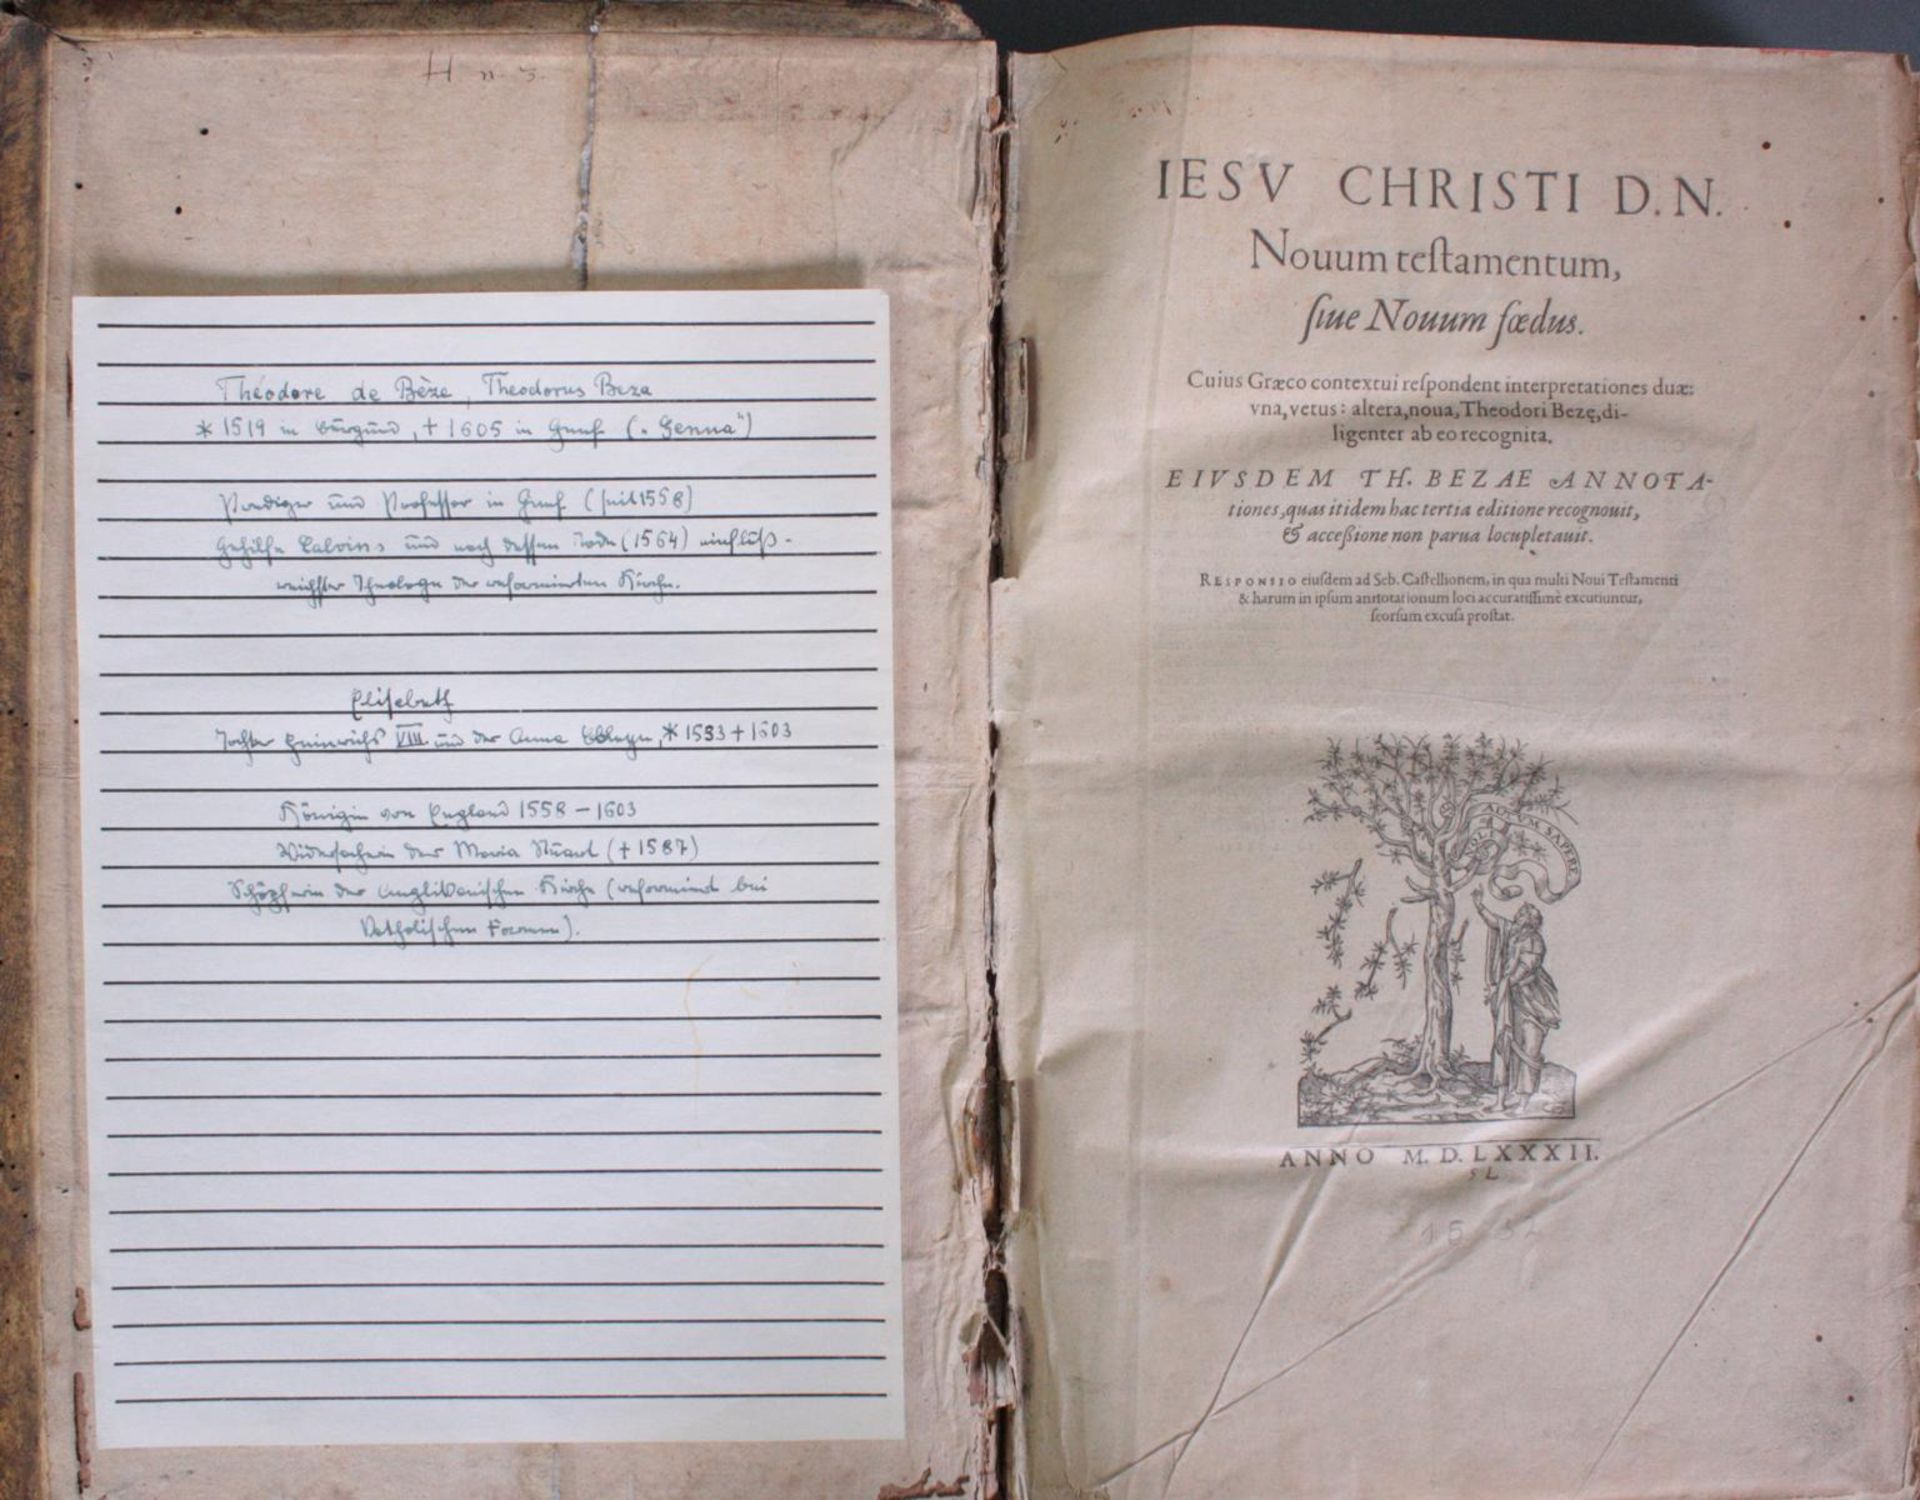 H n. 3.
Théodore de Bèze, Theodorus Beza
* 1519 in Burgund, † 1605 in Genf („Genua")
Prediger und Professor in Genf (seit 1558)
Gehilfe Calvins und nach dessen Tode (1564) einfluß-
reichster Theologe der reformierten Kirche.
Elisabeth
Tochter Heinrichs VIII. und der Anna Boleyn, * 1533 † 1603
Königin von England 1558 – 1603
Widersacherin der Maria Stuart († 1587)
Schöpferin der Anglikanischen Kirche (reformiert bei
katholischen Formen).
IESV CHRISTI D.N.
Nouum teſtamentum,
ſiue Nouum fœdus.
Cuius Græco contextui reſpondent interpretationes duæ:
vna, vetus: altera, noua, Theodori Bezę, di-
ligenter ab eo recognita.
EIVSDEM TH. BEZAE ANNOTA-
tiones, quas itidem hac tertia editione recognouit,
& acceßione non parua locupletauit.
RESPONSIO eiuſdem ad Seb. Caſtellionem, in qua multi Noui Teſtamenti
& harum in ipſum annotationum loci accuratiſſimè excutiuntur,
ſeorſum excuſa proſtat.
NOLI ALTVM SAPERE
ANNO M. D. LXXXII.
SL
15 82